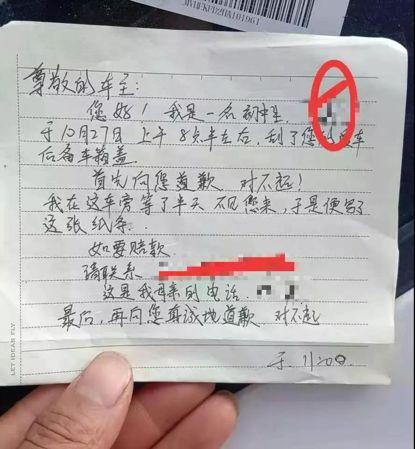 尊敬的车主:
您好! 我是一名初中生
于10月27日 上午 8点半左右, 刮了您 车
后备车箱盖
首先向您道歉 对不起!
我在这车旁等了半天 不见您来, 于是便写了
这张纸条.
如要赔款
请联系
这是我母亲的电话.
最后, 再向您真诚地道歉 对不起
于 11:00
LET IDEAS FLY